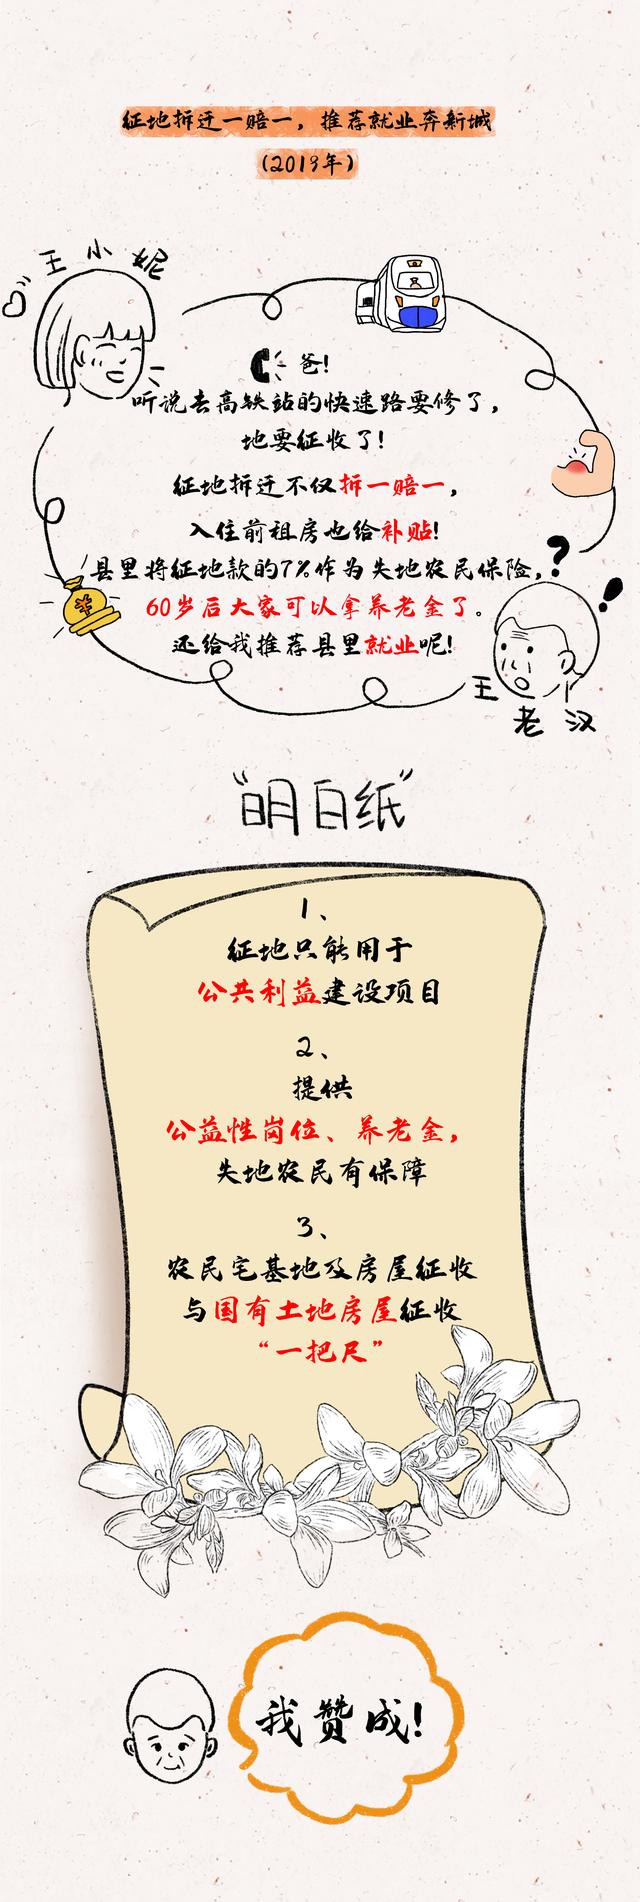 征地拆迁一赔一，推荐就业奔新城
(2019年)
王小妮
爸!
听说去高铁站的快速路要修了，
地要征收了!
征地拆迁不仅拆一赔一，
入住前租房也给补贴!
县里将征地款的7%作为失地农民保险，
60岁后大家可以拿养老金了。
还给我推荐县里就业呢!
？！
王老汉
“明白纸”
1、
征地只能用于
公共利益建设项目
2、
提供
公益性岗位、养老金，
失地农民有保障
3、
农民宅基地及房屋征收
与国有土地房屋征收
“一把尺”
我赞成!